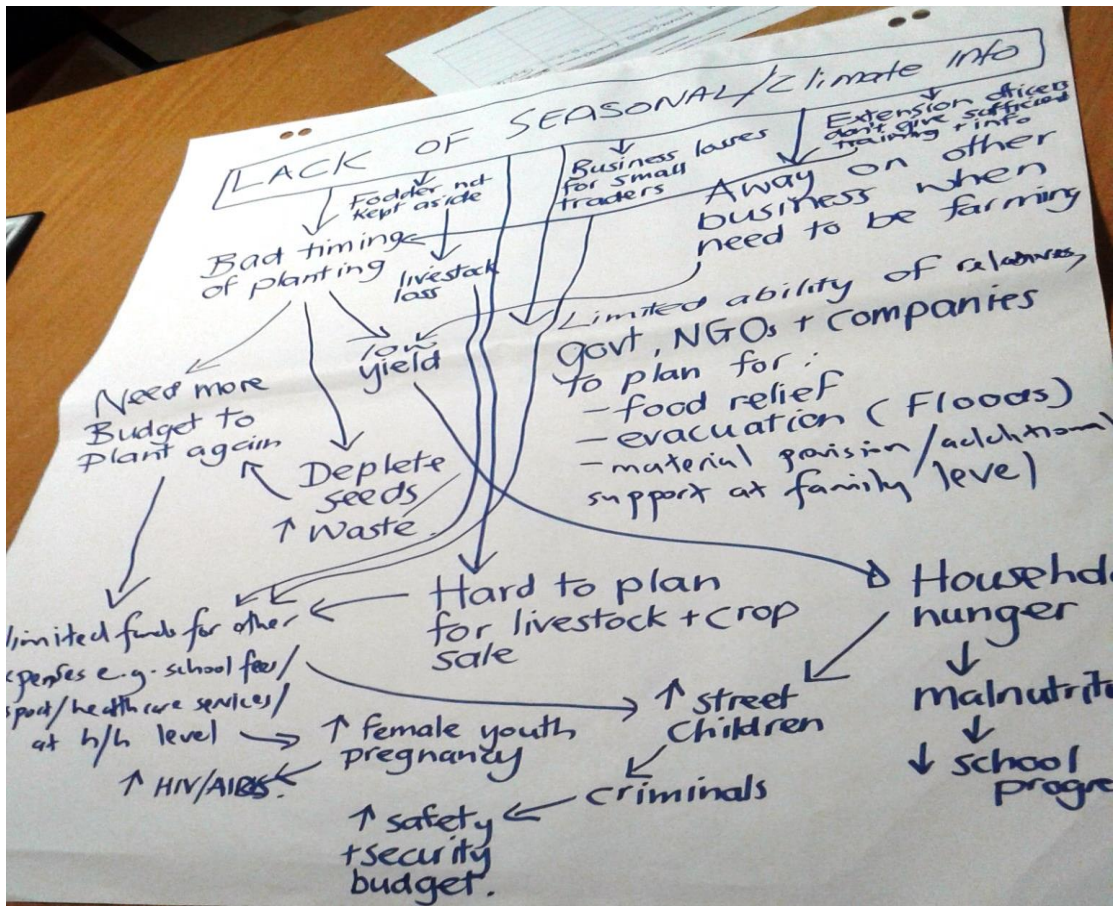 LACK OF SEASONAL/Climate Info
Fodder not
kept aside
Business losses
for small
traders
Extension officers
don't give sufficient
training + info
Bad timing
of planting
livestock
loss
Away on other
business when
need to be farming
low
yield
Limited ability of relatives,
govt, NGOs + companies
to plan for:
- food relief
- evacuation (Floods)
- material provision/additional
support at family level
Need more
Budget to
Plant again
Deplete
seeds
↑ Waste
Hard to plan
for livestock + crop
sale
Househo
hunger
malnutrit
↓ school
progre
limited funds for other
penses e.g. school fees/
port/healthcare services/
at h/h level
↑ female youth
pregnancy
↑ HIV/AIDS.
↑ street
children
criminals
↑ safety
+ security
budget.